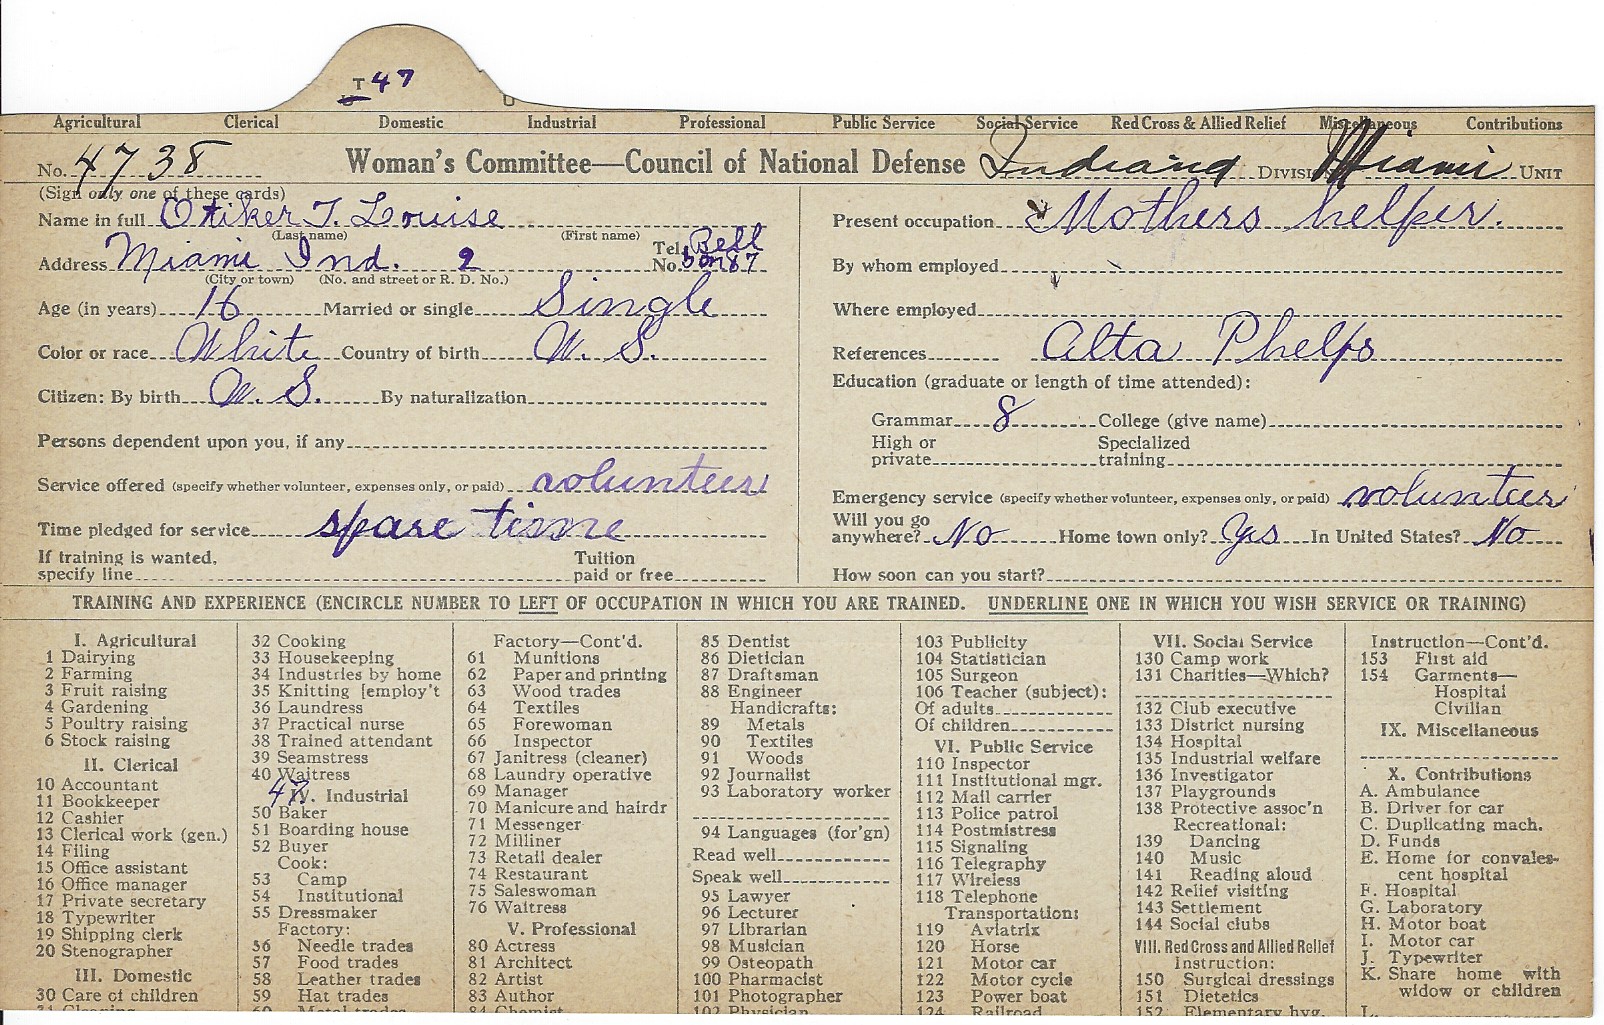 T 47
Agricultural Clerical Domestic Industrial Professional Public Service Social Service Red Cross & Allied Relief Miscellaneous Contributions
No. 4738 Woman's Committee—Council of National Defense Indiana Division Miami Unit
(Sign only one of these cards)
Name in full Otiker T. Louise
(Last name) (First name)
Address Miami Ind. 2 Tel. No. Bell 67
(City or town) (No. and street or R. D. No.)
Age (in years) 16 Married or single Single
Color or race White Country of birth U. S.
Citizen: By birth U. S. By naturalization
Persons dependent upon you, if any
Service offered (specify whether volunteer, expenses only, or paid) volunteer
Time pledged for service spare time
If training is wanted, specify line Tuition paid or free
Present occupation Mothers helper.
By whom employed
Where employed
References Alta Phelps
Education (graduate or length of time attended):
Grammar 8 College (give name)
High or private Specialized training
Emergency service (specify whether volunteer, expenses only, or paid) volunteer
Will you go anywhere? No Home town only? Yes In United States? No
How soon can you start?
TRAINING AND EXPERIENCE (ENCIRCLE NUMBER TO LEFT OF OCCUPATION IN WHICH YOU ARE TRAINED. UNDERLINE ONE IN WHICH YOU WISH SERVICE OR TRAINING)
I. Agricultural
1 Dairying
2 Farming
3 Fruit raising
4 Gardening
5 Poultry raising
6 Stock raising
II. Clerical
10 Accountant
11 Bookkeeper
12 Cashier
13 Clerical work (gen.)
14 Filing
15 Office assistant
16 Office manager
17 Private secretary
18 Typewriter
19 Shipping clerk
20 Stenographer
III. Domestic
30 Care of children
31 Cleaning
32 Cooking
33 Housekeeping
34 Industries by home
35 Knitting [employ't
36 Laundress
37 Practical nurse
38 Trained attendant
39 Seamstress
40 Waitress
47 IV. Industrial
50 Baker
51 Boarding house
52 Buyer
Cook:
53 Camp
54 Institutional
55 Dressmaker
Factory:
56 Needle trades
57 Food trades
58 Leather trades
59 Hat trades
60 Metal trades
Factory—Cont'd.
61 Munitions
62 Paper and printing
63 Wood trades
64 Textiles
65 Forewoman
66 Inspector
67 Janitress (cleaner)
68 Laundry operative
69 Manager
70 Manicure and hairdr
71 Messenger
72 Milliner
73 Retail dealer
74 Restaurant
75 Saleswoman
76 Waitress
V. Professional
80 Actress
81 Architect
82 Artist
83 Author
84 Chemist
85 Dentist
86 Dietician
87 Draftsman
88 Engineer
Handicrafts:
89 Metals
90 Textiles
91 Woods
92 Journalist
93 Laboratory worker
94 Languages (for'gn)
Read well
Speak well
95 Lawyer
96 Lecturer
97 Librarian
98 Musician
99 Osteopath
100 Pharmacist
101 Photographer
102 Physician
103 Publicity
104 Statistician
105 Surgeon
106 Teacher (subject):
Of adults
Of children
VI. Public Service
110 Inspector
111 Institutional mgr.
112 Mail carrier
113 Police patrol
114 Postmistress
115 Signaling
116 Telegraphy
117 Wireless
118 Telephone
Transportation:
119 Aviatrix
120 Horse
121 Motor car
122 Motor cycle
123 Power boat
124 Railroad
VII. Social Service
130 Camp work
131 Charities—Which?
132 Club executive
133 District nursing
134 Hospital
135 Industrial welfare
136 Investigator
137 Playgrounds
138 Protective assoc'n
Recreational:
139 Dancing
140 Music
141 Reading aloud
142 Relief visiting
143 Settlement
144 Social clubs
VIII. Red Cross and Allied Relief
Instruction:
150 Surgical dressings
151 Dietetics
152 Elementary hyg.
Instruction—Cont'd.
153 First aid
154 Garments—
Hospital
Civilian
IX. Miscellaneous
X. Contributions
A. Ambulance
B. Driver for car
C. Duplicating mach.
D. Funds
E. Home for convales-
cent hospital
F. Hospital
G. Laboratory
H. Motor boat
I. Motor car
J. Typewriter
K. Share home with
widow or children
L.